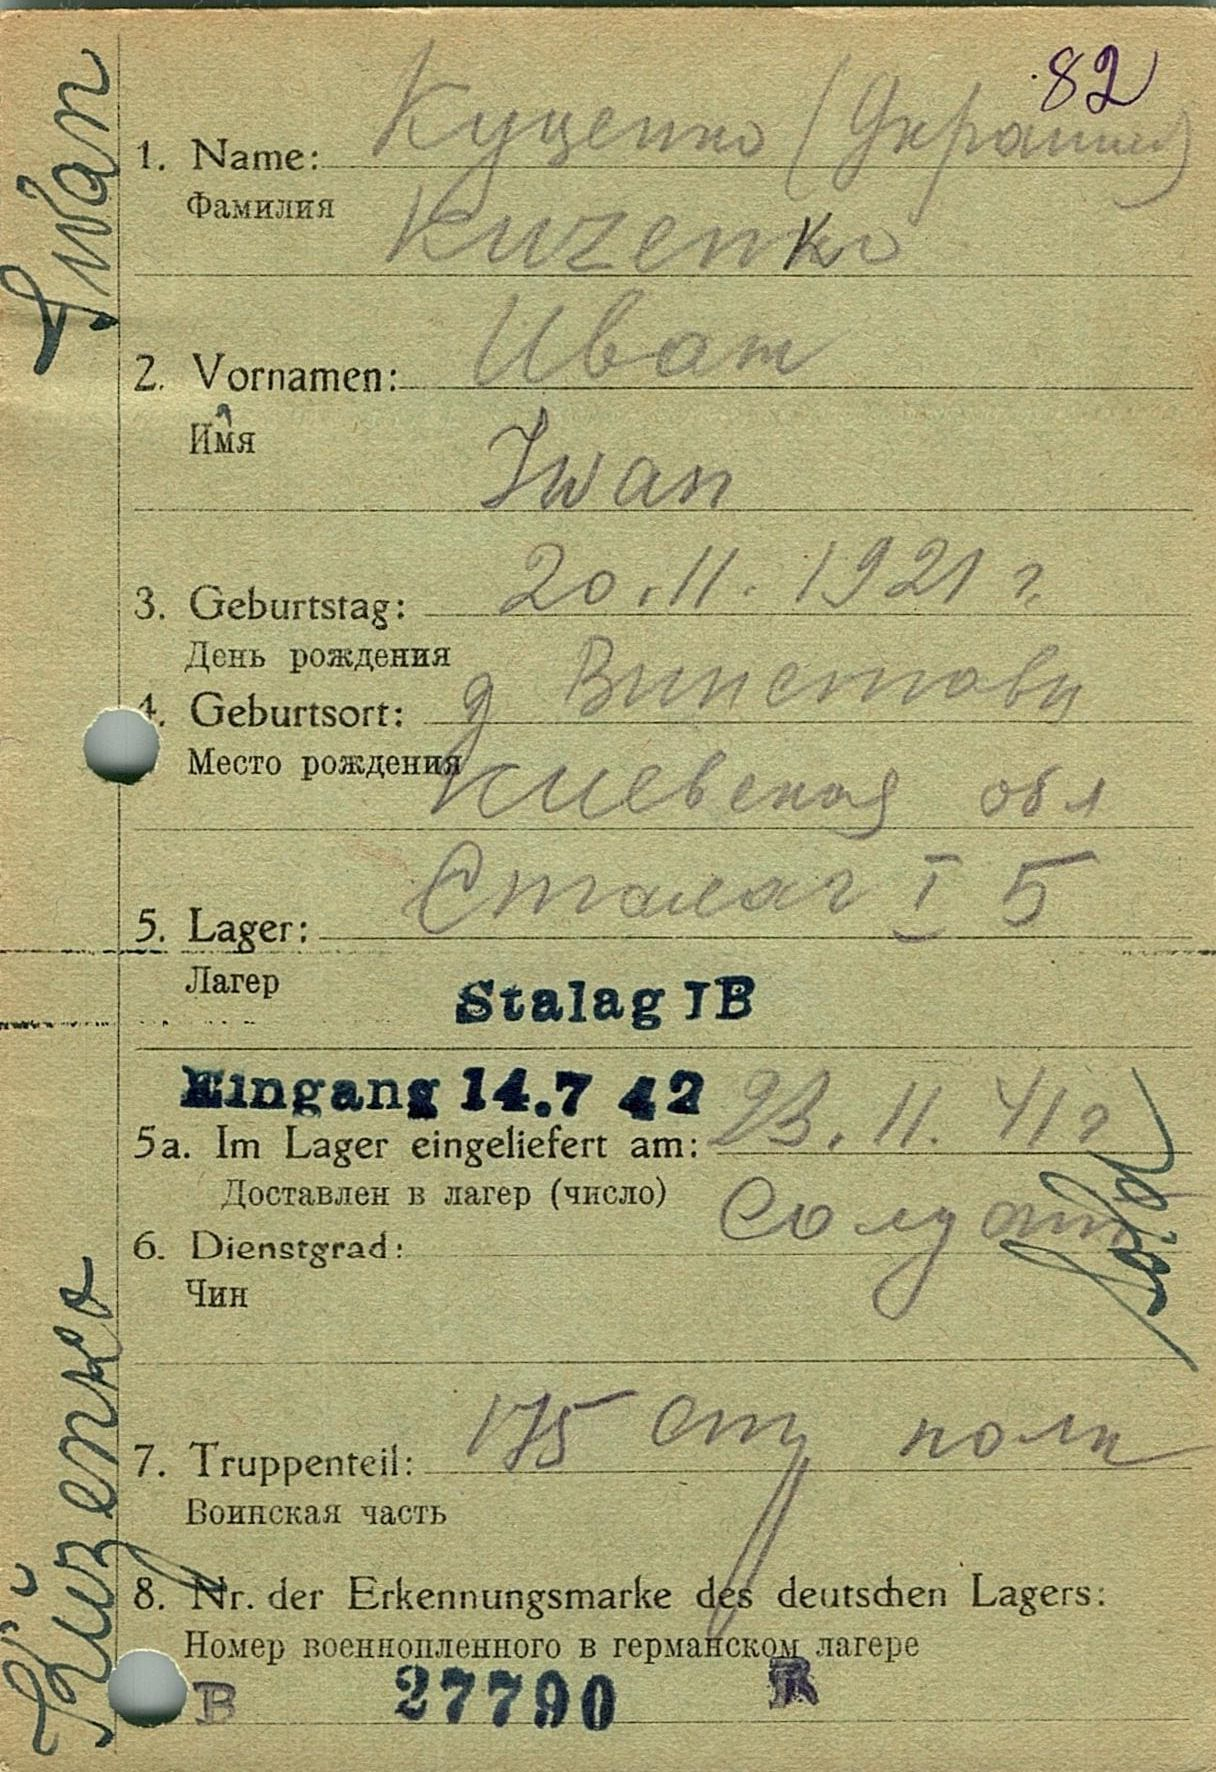 82
1. Name: Куценко (Украинец)
Фамилия
Kuzenko
2. Vornamen: Иван
Имя
Iwan
3. Geburtstag: 20.11.1921 г.
День рождения
4. Geburtsort: д
Место рождения
Киевская обл
5. Lager: Сталаг I Б
Лагер
Stalag IB
Eingang 14.7 42
5a. Im Lager eingeliefert am: 23.11.41 г
Доставлен в лагер (число)
6. Dienstgrad: Солдат Sold
Чин
7. Truppenteil: 175 стр полк
Воинская часть
8. Nr. der Erkennungsmarke des deutschen Lagers:
Номер военнопленного в германском лагере
B 27790 R
Kuzenko Iwan